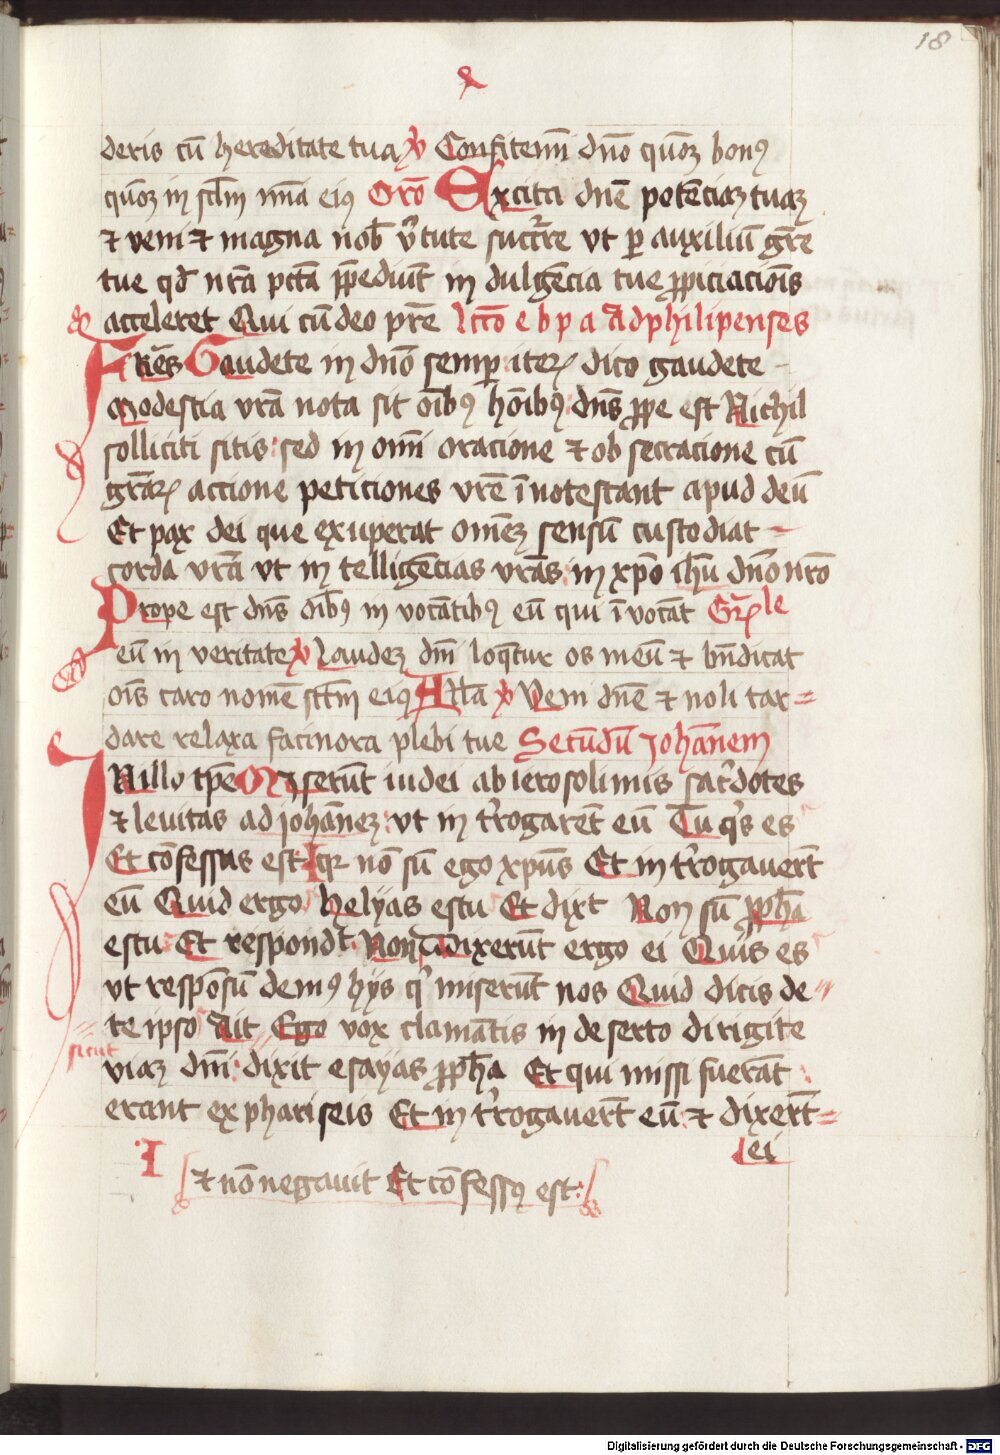 18
deris cū hereditate tua ℣ Confitemī dn̄o quōꝫ bonꝰ
quōꝫ in sclm̄ mīa eiꝰ Oro᷑ Excita dn̄e potēciaꝫ tuaꝫ
⁊ veni ⁊ magna nob᷒ v̓tute succ̓re vt ꝑ auxiliū gr̄e
tue qd̓ nr̄a pct̄a p̄pediūt in dulgēcia tue ꝓpiciacionīs
acceleret Qui cū deo pr̄e lcc̄o e b p a Ad philipenses
Frēs Gaudete in dn̄o semꝑ iteꝝ dico gaudete
Modestia vr̄a nota sit oīb᷒ hoīb᷒ dn̄s ꝓpe est Nichil
solliciti sitis sed in om̄i oracione ⁊ ob secracione cū
gr̄aꝝ actione peticiones vr̄e īnotescant apud deū
Et pax dei que exuperat omēꝫ sensū custodiat
corda vr̄a vt in telligēcias vr̄as in xp̄o ih̄u dn̄o nr̄o
Prope est dn̄s oīb᷒ in vocātib᷒ eū qui īvocāt Gr̄le
eū in veritate ℣ Laudeꝫ dn̄i loq̄tur os meū ⁊ bn̄dicat
oīs caro nomē sct̄m eiꝰ All̄a ℣ Veni dn̄e ⁊ noli tar=
dare relaxa facinora plebi tue Secūdū Johānem
IN illo tp̄e Miserūt iudei ab ierosolimis sac̓dotes
⁊ leuitas ad johāneꝫ vt in t̓rogarēt eū Tu q̓s es
Et cōfessus est qꝛ nō sū ego xp̄us Et in t̓rogauer̄t
eū Quid ergo helyas es tu Et dixt Non sū ꝓph̄a
es tu Et respondt̓ Non Dixerūt ergo ei Quis es
vt respōsū demꝰ hys q̓ miserūt nos Quid dicis de
te ipso Ait Ego vox clamātis in deserto dirigite
sicut
viaꝫ dn̄i dixit esayas ꝓph̄a Et qui missi fuerāt
erant ex phariseis Et in t̓rogauer̄t eū ⁊ dixer̄t=
ei
⁊ nō negauit Et cōfessꝰ est
Digitalisierung gefördert durch die Deutsche Forschungsgemeinschaft - DFG